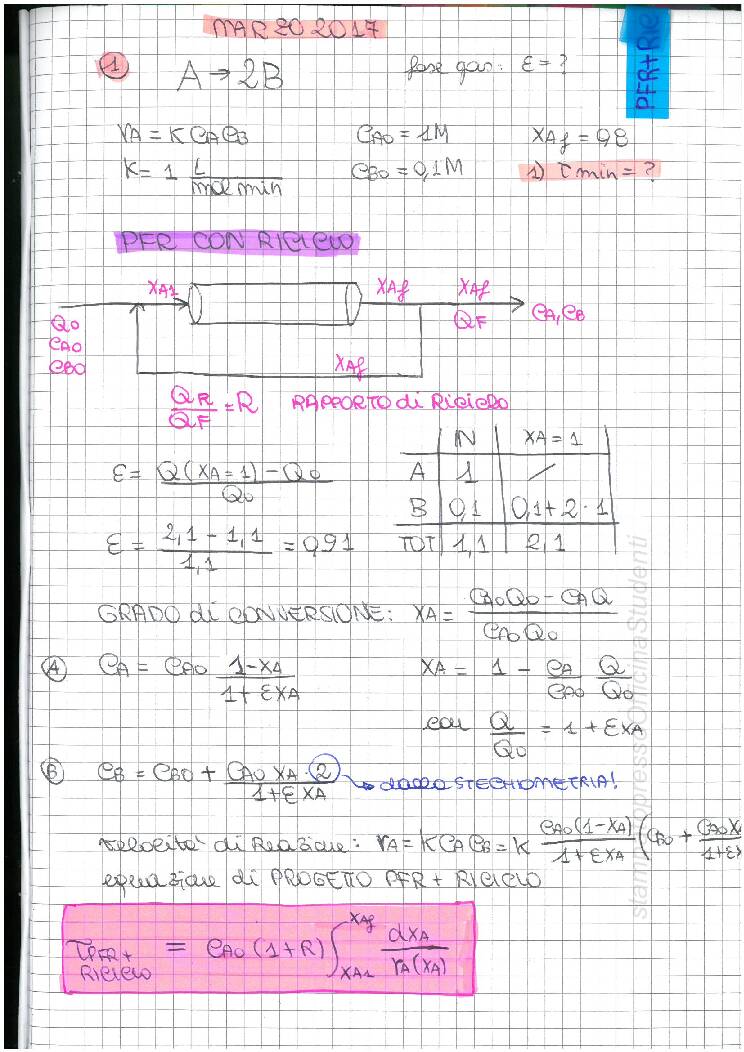 MARZO 2017
PFR+RIC
① A → 2B fase gas: ε = ?
rA = K CA CB CA0 = 1M XAf = 0,8
K = 1 L/mol min CB0 = 0,1M 1) τ min = ?
PFR CON RICICLO
XA1 XAf XAf
Q0 QF CA, CB
CA0
CB0
XAf
QR/QF = R RAPPORTO di RICICLO
IN XA = 1
ε = (Q(XA=1) - Q0)/Q0 A 1 /
B 0,1 0,1+2·1
ε = (2,1 - 1,1)/1,1 = 0,91 TOT 1,1 2,1
GRADO di CONVERSIONE: XA = (CA0 Q0 - CA Q)/(CA0 Q0)
Ⓐ CA = CA0 (1-XA)/(1+εXA) XA = 1 - CA/CA0 Q/Q0
con Q/Q0 = 1+εXA
Ⓑ CB = CB0 + (CA0 XA · 2)/(1+εXA) dalla STECHIOMETRIA!
velocità di Reazione: rA = K CA CB = K CA0(1-XA)/(1+εXA) (CB0 + CA0X/(1+εX
equazione di PROGETTO PFR + RICICLO
τPFR+RICICLO = CA0 (1+R) ∫XA1 XAf dXA/rA(XA)
stampa presso OfficinaStudenti